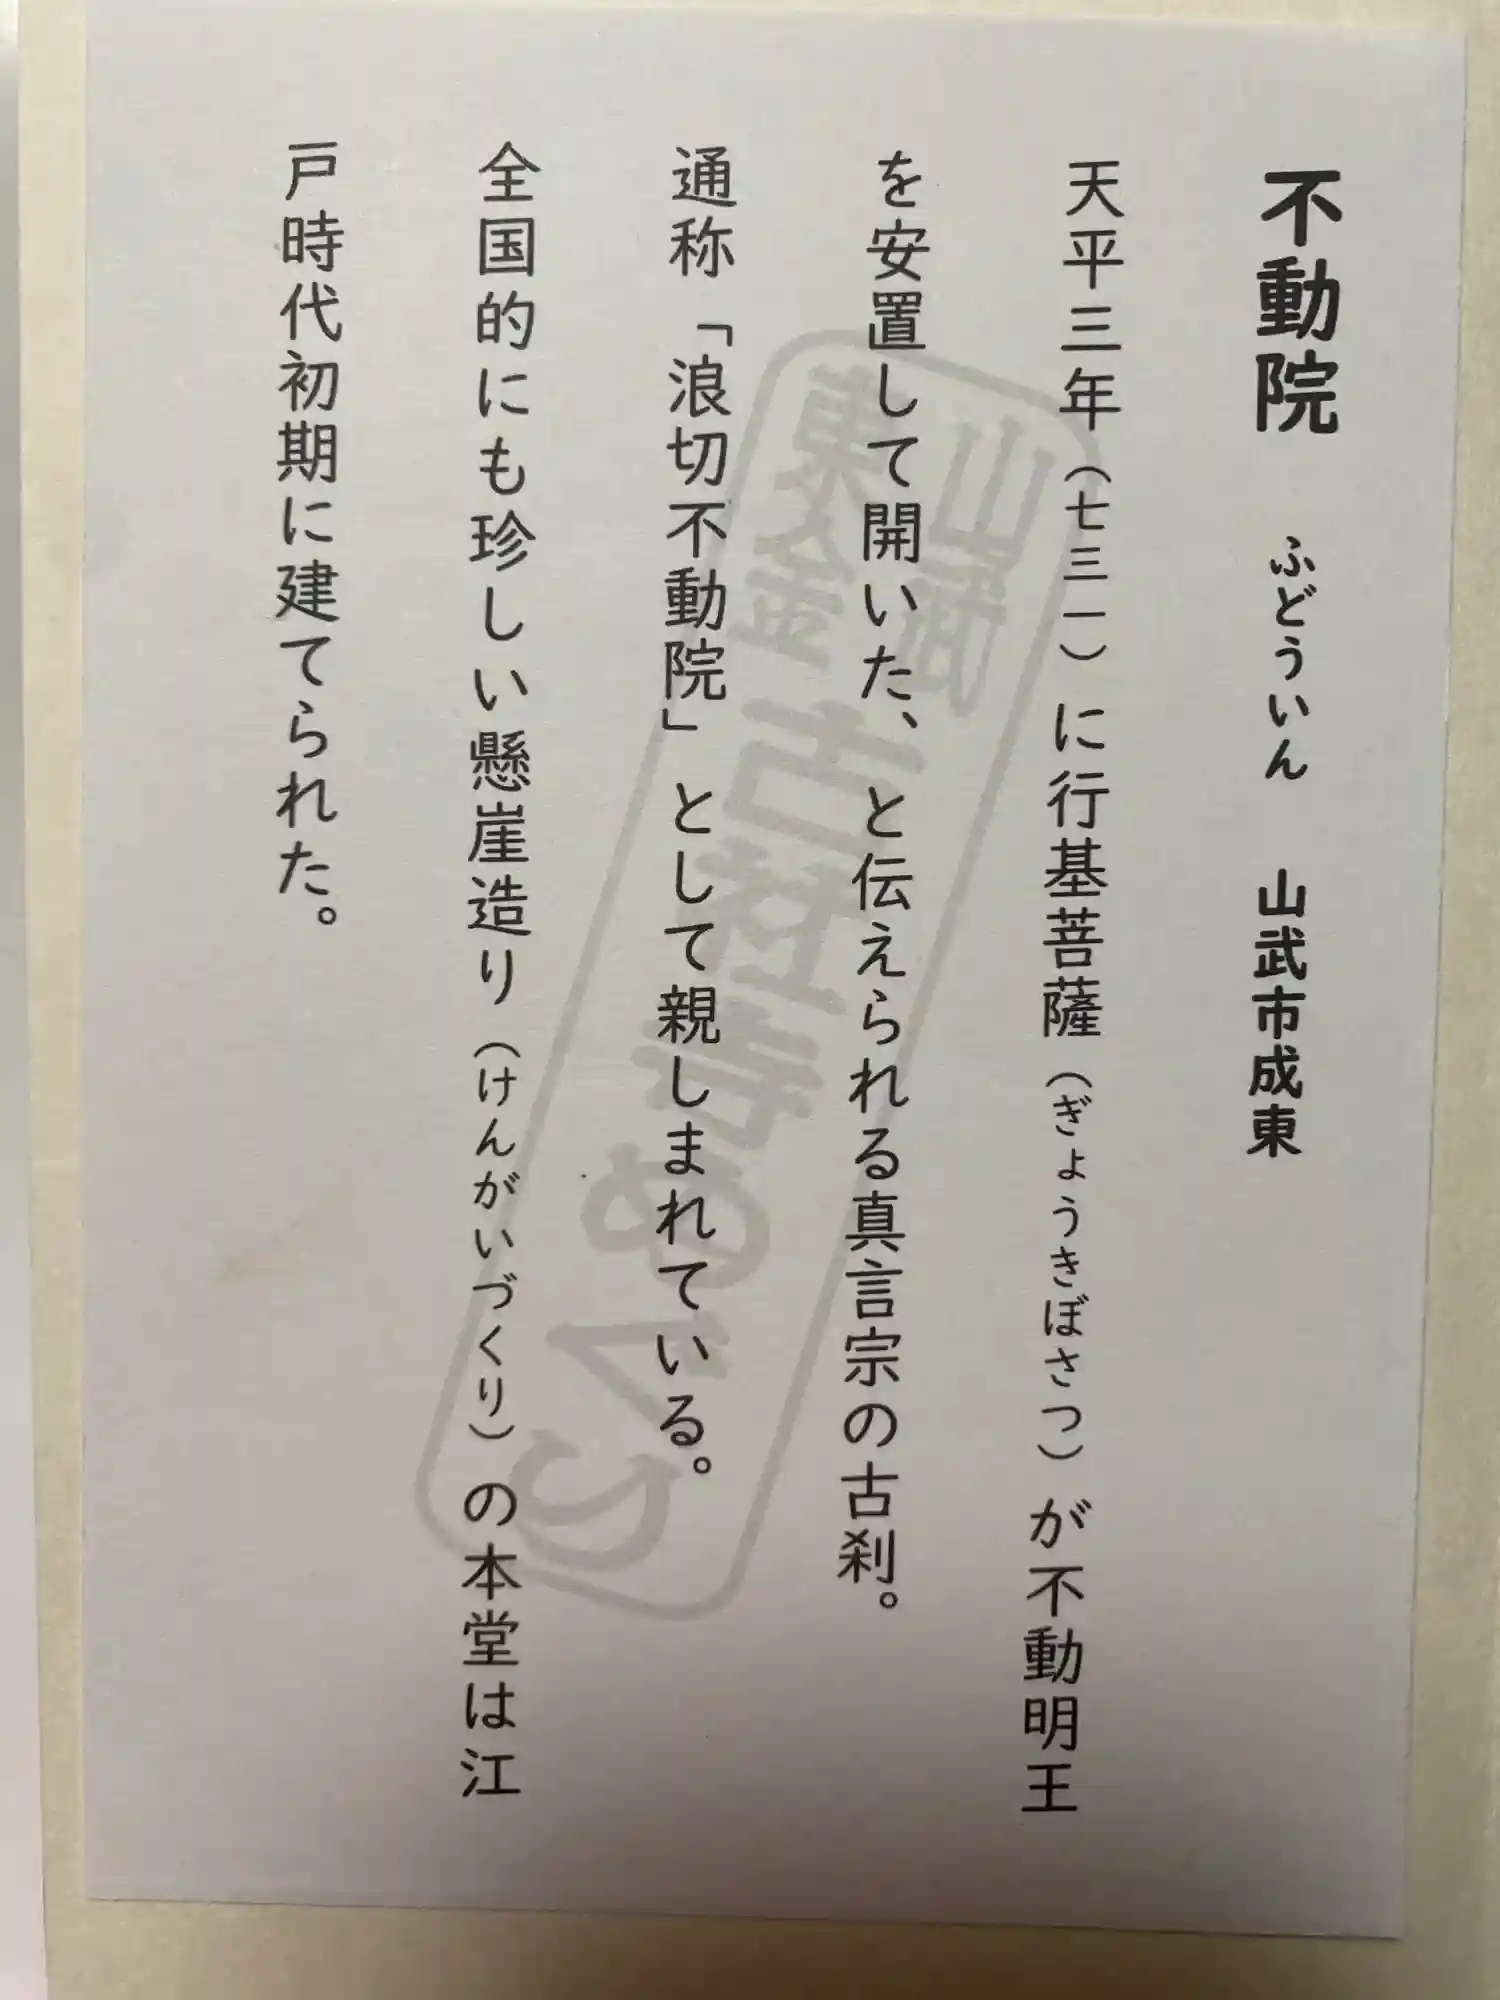 不動院 ふどういん 山武市成東
天平三年（七三一）に行基菩薩（ぎょうきぼさつ）が不動明王
を安置して開いた、と伝えられる真言宗の古刹。
通称「浪切不動院」として親しまれている。
全国的にも珍しい懸崖造り（けんがいづくり）の本堂は江
戸時代初期に建てられた。
東金